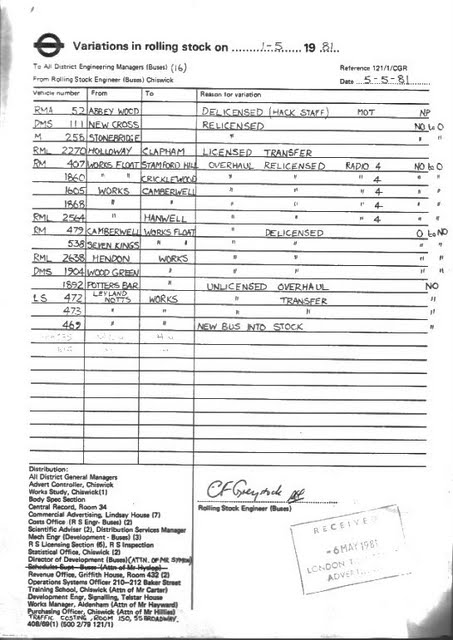 Variations in rolling stock on 1-5 19 81.
To All District Engineering Managers (Buses) (16)
Reference 121/1/CGR
From Rolling Stock Engineer (Buses) Chiswick
Date 5-5-81
Vehicle number From To Reason for variation
RMA 52 ABBEY WOOD DELICENSED (HACK STAFF) MOT NP
DMS 111 NEW CROSS RELICENSED NO to O
M 256 STONEBRIDGE " " "
RML 2270 HOLLOWAY CLAPHAM LICENSED TRANSFER
RM 407 WORKS FLOAT STAMFORD HILL OVERHAUL RELICENSED RADIO 4 NO to O
1860 " " CRICKLEWOOD " " " 4 " "
1605 WORKS CAMBERWELL " " " 4 " "
1868 " " " " " 4 " "
RML 2564 " HANWELL " " " 4 " "
RM 479 CAMBERWELL WORKS FLOAT " DELICENSED O to NO
538 SEVEN KINGS " " " " "
RML 2638 HENDON WORKS " " " "
DMS 1904 WOOD GREEN " " " " "
1892 POTTERS BAR " UNLICENSED OVERHAUL NO
LS 472 LEYLAND NOTTS WORKS " TRANSFER "
473 " " " " "
469 " " NEW BUS INTO STOCK "
Distribution:
All District General Managers
Advert Controller, Chiswick
Works Study, Chiswick(1)
Body Spec Section
Central Record, Room 34
Commercial Advertising, Lindsay House (7)
Costs Office (R S Engr- Buses) (2)
Scientific Adviser (2), Distribution Services Manager
Mech Engr (Development - Buses) (3)
R S Licensing Section (6), R S Inspection
Statistical Office, Chiswick (2)
Director of Development (Buses) (ATTN. OF MR SYMON)
Schedules Supt - Buses (Attn of Mr Hyslop)
Revenue Office, Griffith House, Room 432 (2)
Operations Systems Officer 210-212 Baker Street
Training School, Chiswick (Attn of Mr Carter)
Development Engr, Signalling, Telstar House
Works Manager, Aldenham (Attn of Mr Hayward)
Purchasing Officer, Chiswick (Attn of Mr Hillies)
TRAFFIC COSTING, ROOM 150, 55 BROADWAY.
408/69(1) (500 2/79 121/1)
CF Greystock
Rolling Stock Engineer (Buses)
RECEIVED
-6 MAY 1981
LONDON
ADVERT